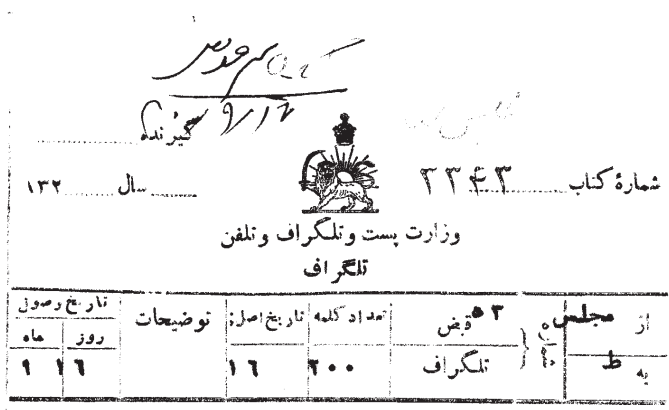 ۹/۱۶
گیرنده
شمارهٔ کتاب ۳۳۴۳
سال ۱۳۲
وزارت پست و تلگراف و تلفن
تلگراف
از مجلس
به ط
شماره
قبض ۵۳
تلگراف
تعداد کلمه ۲۰۰
تاریخ اصل: ۱۶
توضیحات
تاریخ وصول
روز ماه
۱۶ ۹